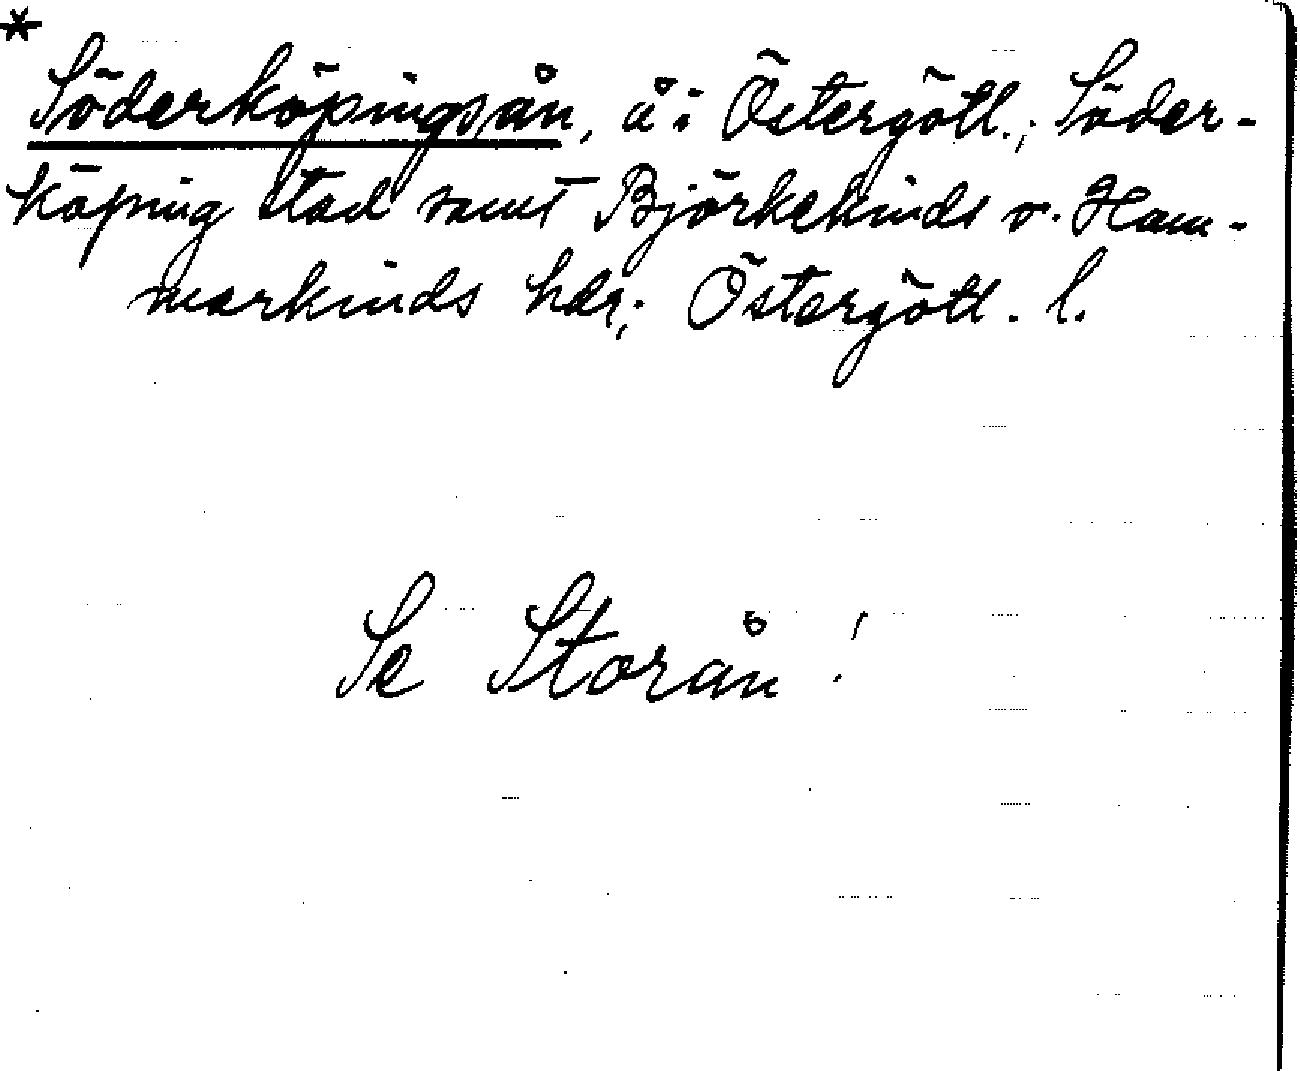 *
Söderköpingsån, å i Östergötl.; Söder-
köping stad samt Björkekinds o. Ham-
markinds hdr; Östergötl. l.
Se Storån!